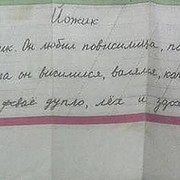 Йожик
ик. Он любил повисилица, по
а он висилился, валялся, кат
дупло, лёх и здох